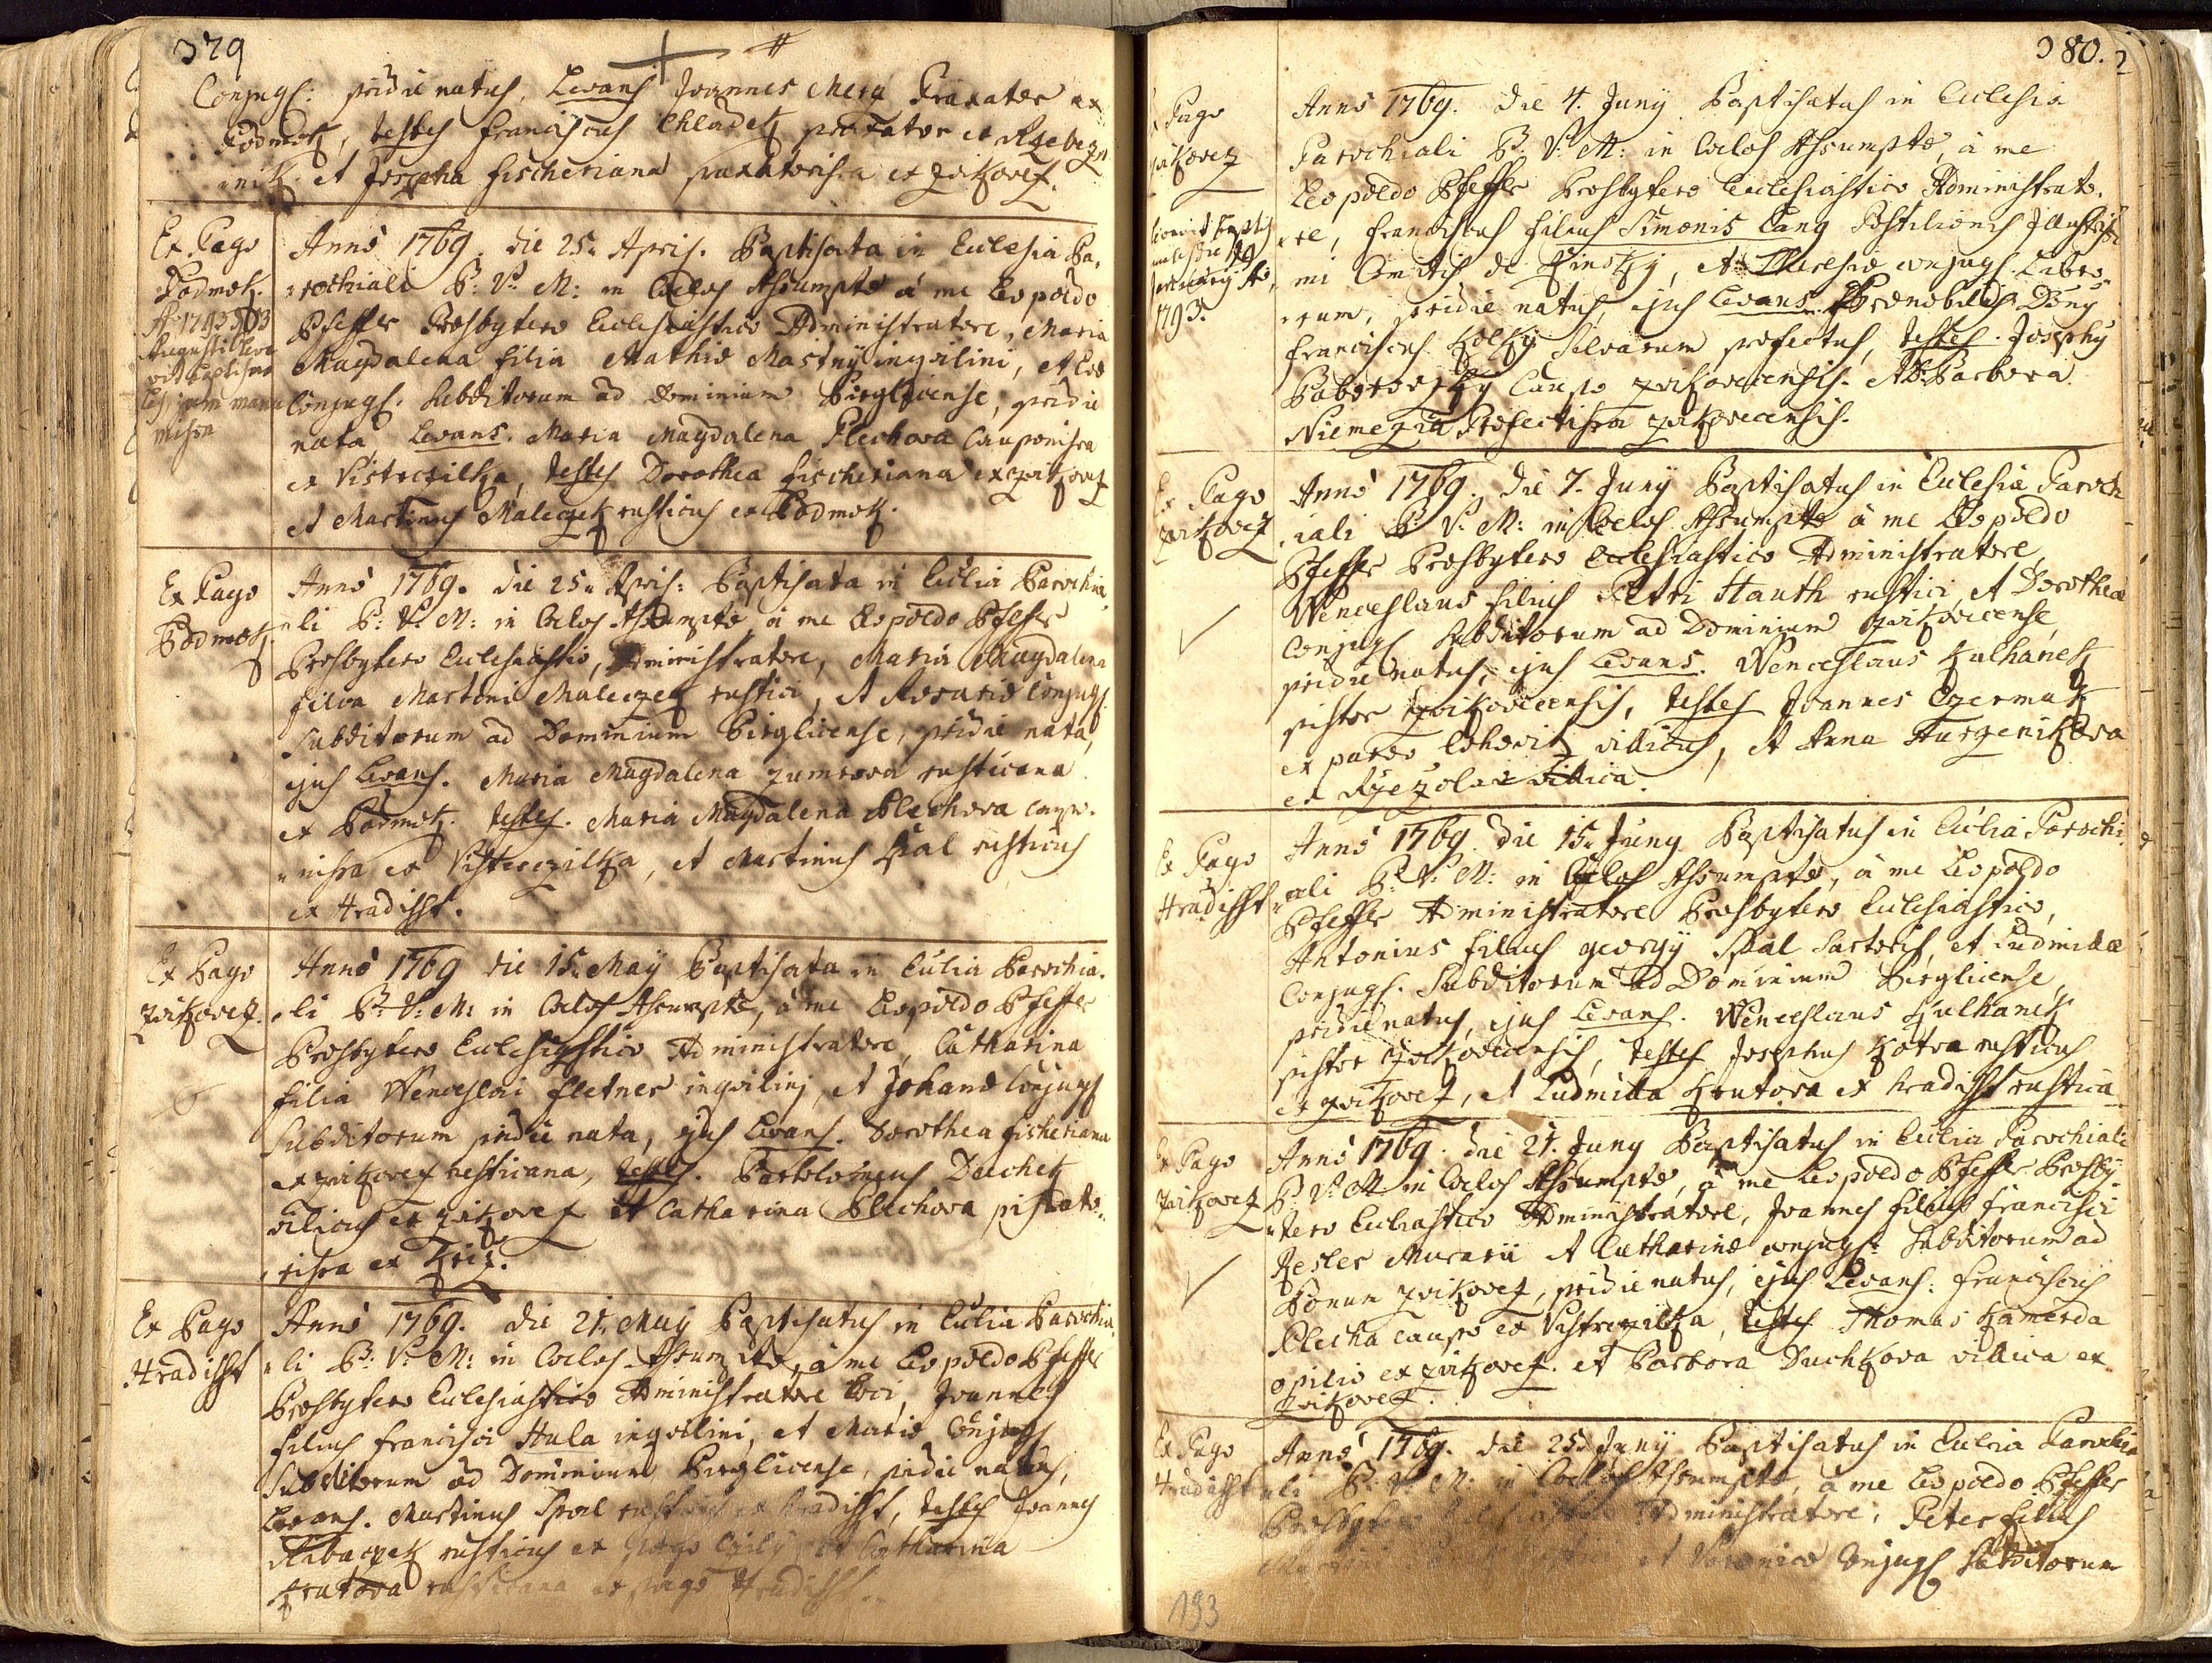 379
Conjugs: pridie natus, Levans Joannes Mera Braxator ex
Podmok, testes Franciscus Chladek
et Josepha Fischeriana ex Zvikovez.
Ex Pago
Podmok.
Anno 1769. die 25. Apris. Baptisata in Ecclesia Pa,
rochiali B. V. M: in Coelos Assumptæ à me Leopoldo
Pfeffer Presbytero Ecclesiastico Administratore, Maria
Magdalena filia Mathiæ Mastny inqvilini, et Evæ
Conjugs. Subditorum ad Dominium Pirglicense, pridie
nata Levans. Maria Magdalena Plechova Cauponissa
ex Vistrczilka, testes Dorothea Fischeriana ex Zvikovez
et Martinus Maleczek rusticus ex Podmok.
Ex Pago
Podmok.
Anno 1769. die 25. Apris: Baptisata in Ecclia Parochia
li B: V. M: in Coelos Assumptæ, à me Leopoldo Pfeffer
Presbytero Ecclesiastico, Administratore, Maria Magdalena
filia Martini Maleczek rustici, et Rosariæ Conjugs.
Subditorum ad Dominium Pirglicense, pridie nata,
ejus Levans. Maria Magdalena Zumrova rusticana
ex Podmok. testes. Maria Magdalena Plechova caupo.
nissa ex Vistreczilka, et Martinus Spal rusticus
ex Hradisst.
Ex Pago
Zvikovez.
Anno 1769 die 15. May Baptisata in Ecclia Parochia.
li B: V: M: in Coelos Assumptæ, à me Leopoldo Pfeffer
Presbytero Ecclesiastico Administratore, Catharina
filia Wenceslai Fletner inqvilinj, et Johanæ Conjugs
Subditorum pridie nata, ejus Levans. Dorothea Fisheriana
ex Zvikovez rusticana, testes. Bartolomeus Duchek
vilicus ex Zvikovez et Catharina Plechova pistato.
rissa ex Kriz.
Ex Pago
Hradisst
Anno 1769. die 21. May Baptisatus in Ecclia Parochia
li B: V: M: in Coelos Assumptæ, à me Leopoldo Pfeffer
Presbytero Ecclesiastico Administratore Loci, Joannes
filius Francisci Hula inqvilini, et Mariæ Conjugs
Subditorum ad Dominium Pirglicense, pridie natus,
Levans. Martinus Spal rusticus ex Hradisst, testes Joannes
Rabaczek rusticus ex Pago et Catharina
Krutova rusticana ex pago Hradisst.
380.
Pago
Zvikovez
1793.
Anno 1769. die 4. Juny Baptisatus in Ecclesia
Parochiali B: V: M: in Coelos Assumptæ, à me
Leopoldo Pfeffer Presbytero Ecclesiastico Administrato.
re, Franciscus filius Simonis Lang Postilionis Illustrissi
mi Comitis de Kinsky, et Theresiæ conjugs. Libero,
rum, pridie natus, ejus Levans Prænobilis Dony
Franciscus Silvarum præfectus, testes. Josephy
Caupo Zvikovecensis. et D. Barbora
Niemezia Præfectissa Zvikovecensis.
Ex Pago
Zvikovez
Anno 1769. die 7. Juny Baptisatus in Ecclesia Paroch
iali B: V. M: in Coelos Assumptæ à me Leopoldo
Pfeffer Presbytero Ecclesiastico Administratore
Wenceslaus filius Petri Hauth rustici, et Dorotheæ
Conjugs Subditorum ad Dominium Zvikovecense,
pridie natus, ejus Levans. Wenceslaus Kulhanek
pistor Zvikovecensis, testes Joannes Czermak
ex parvo Lohovitz villicus, et Anna
ex villica.
Ex Pago
Hradisst
Anno 1769. die 15. Juny Baptisatus in Ecclia Parochi.
ali B: V: M: in Coelos Assumptæ, à me Leopoldo
Pfeffer Administratore Presbytero Ecclesiastico,
Antonius filius Georgy Spal Sartoris, et Ludmilæ
Conjugs. Subditorum ad Dominium Pirglicense,
pridie natus, ejus Levans. Wenceslaus Kulhanek
pistor Zvikovecensis, testes Josephus Kotva rusticus
ex Zvikovez, et Ludmilla Krutova ex Hradisst rustica
Ex Pago
Zvikovez
Anno 1769. die 21. Juny Baptisatus in Ecclia Parochiali
B: V: M in Coelos Assumptæ, à me Leopoldo Pfeffer Presby.
tero Eccliastico Administratore, Joannes filius Francisci
Kesler Murarii et Catharinæ conjugs. Subditorum ad
Bonum Zvikovez, pridie natus, ejus Levans: Franciscus
Plecha caupo ex Vistreczilka, testes Thomas Kamerda
opilio ex Zvikovez. et Barbora Duchkova villica ex
Zvikovez.
Ex Pago
Hradisst
Anno 1769. die 25. Juny Baptisatus in Ecclia Parochia
li B: V. M: in Coelos Assumptæ, à me Leopoldo Pfeffer
Presbytero Ecclesiastico Administratore, Peter filius
et Veronicæ Conjugs Subditorum
193